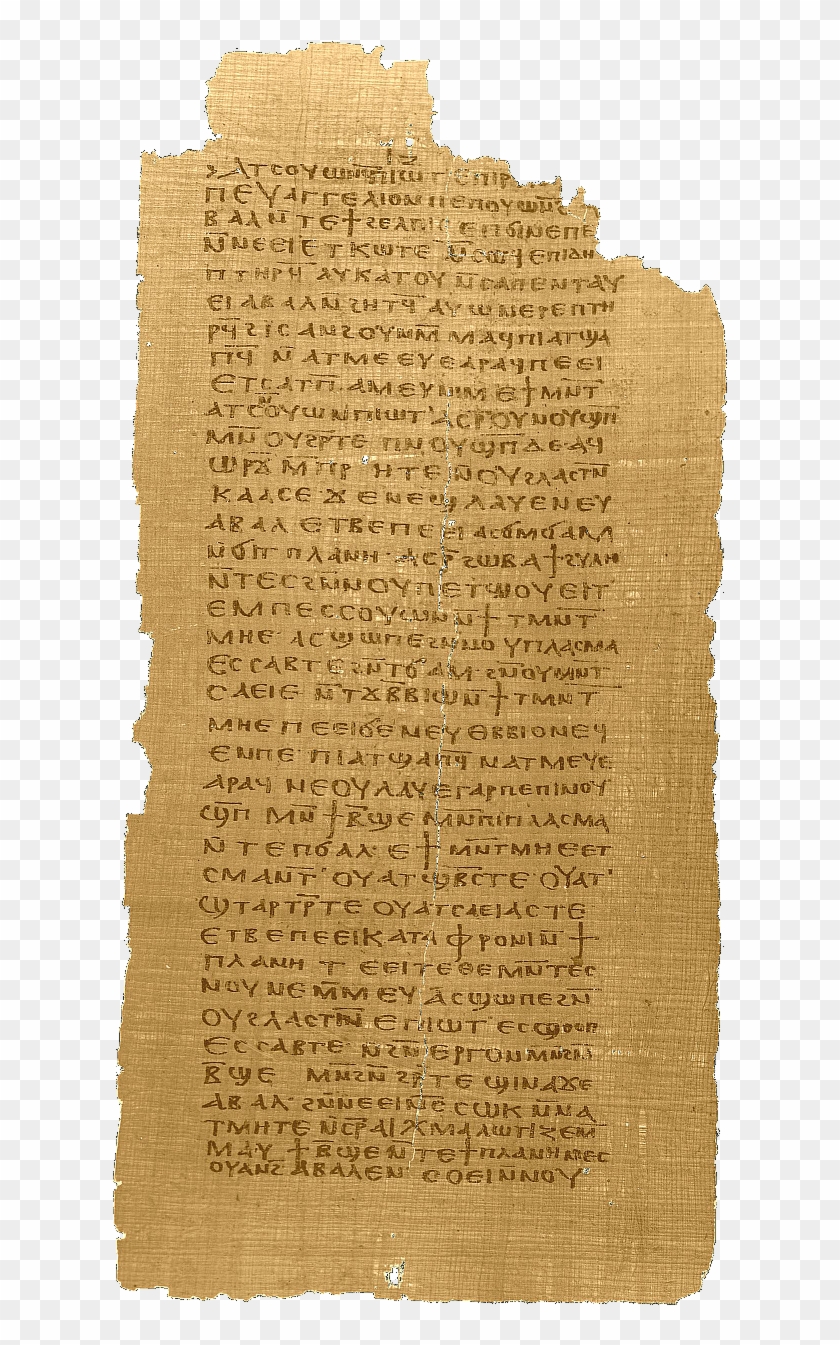 ⲓ̅ⲍ̅
ⲡⲉⲩⲁⲅⲅⲉⲗⲓⲟⲛⲡⲉⲡⲟⲩⲱⲛϩ
ⲃⲁⲗⲛ̄ⲧⲉϯϩⲉⲗⲡⲓⲥ ⲉⲡϭⲓⲛⲉⲡⲉ
ⲛ̄ⲛⲉⲉⲓ ⲉⲧⲕⲱⲧⲉ ⲛ̄ⲥⲱϥ ⲉⲡⲓⲇⲏ
ⲡⲧⲏⲣϥ̄ ⲁⲩⲕⲁⲧⲟⲩ ⲛ̄ⲥⲁⲡⲉⲛⲧⲁⲩ
ⲉⲓ ⲁⲃⲁⲗ ⲛ̄ϩⲏⲧϥ ⲁⲩⲱ ⲛⲉⲣⲉⲡⲧⲏ
ⲣϥ̄ ϩⲓⲥⲁⲛϩⲟⲩⲛ ⲙ̄ⲙⲁϥ ⲡⲓⲁⲧϣⲁ
ⲡϥ̄ ⲛ̄ⲁⲧⲙⲉⲉⲩⲉ ⲁⲣⲁϥ ⲡⲉⲉⲓ
ⲉⲧⲥⲁⲧⲡ̄ ⲁⲙⲉⲩ ⲛⲓⲙ ⲉϯⲙⲛ̄ⲧ
ⲁⲧⲥⲟⲩⲱⲛⲡⲓⲱⲧ ⲁⲥⲣ̄ⲟⲩⲛⲟⲩϣⲡ̄
ⲙⲛ̄ ⲟⲩϩⲣ̄ⲧⲉ ⲡⲛⲟⲩϣⲡ̄ ⲇⲉ ⲁϥ
ⲱⲣϫ̄ ⲙ̄ⲡⲣⲏⲧⲉ ⲛ̄ⲟⲩϩⲗⲁⲥⲧⲛ̄
ⲕⲁⲁⲥⲉ ϫⲉ ⲛⲉϣⲗⲁⲩⲉ ⲛⲉⲩ
ⲁⲃⲁⲗ ⲉⲧⲃⲉⲡⲉⲉⲓ ⲁⲥϭⲙϭⲁⲙ
ⲛ̄ϭⲓ ⲡⲗⲁⲛⲏ ⲁⲥⲣ̄ϩⲱⲃ ⲁϯϩⲩⲗⲏ
ⲛ̄ⲧⲉⲥ ϩⲛ̄ⲛⲟⲩⲡⲉⲧϣⲟⲩⲉⲓⲧ
ⲉⲙⲡⲉⲥⲥⲟⲩⲱⲛ ⲛ̄ϯⲧⲙⲛ̄ⲧ
ⲙⲏⲉ ⲁⲥϣⲱⲡⲉ ϩⲛ̄ⲛⲟⲩⲡⲗⲁⲥⲙⲁ
ⲉⲥⲥⲁⲃⲧⲉ ϩⲛ̄ⲧϭⲁⲙ ϩⲛ̄ⲟⲩⲙⲛ̄ⲧ
ⲥⲁⲉⲓⲉ ⲛ̄ⲧϫⲃ̄ⲃⲓⲱ ⲛ̄ϯⲧⲙⲛ̄ⲧ
ⲙⲏⲉ ⲡⲉⲉⲓ ϭⲉ ⲛⲉⲩⲑⲃⲃⲓⲟ ⲛⲉϥ
ⲉⲛ ⲡⲉ ⲡⲓⲁⲧϣⲁⲡϥ̄ ⲛⲁⲧⲙⲉⲩⲉ
ⲁⲣⲁϥ ⲛⲉⲟⲩⲗⲁⲩⲉ ⲅⲁⲣ ⲡⲉ ⲡⲓⲛⲟⲩ
ϣⲡ̄ ⲙⲛ̄ ϯⲃ̄ϣⲉ ⲙⲛ̄ ⲡⲓⲡⲗⲁⲥⲙⲁ
ⲛ̄ⲧⲉ ⲡϭⲁⲗ ⲉϯⲙⲛ̄ⲧⲙⲏⲉ ⲉⲧ
ⲥⲙⲁⲛⲧ̄ ⲟⲩⲁⲧϣⲃ̄ⲧⲥ ⲧⲉ ⲟⲩⲁⲧ
ϣⲧⲁⲣⲧⲣ̄ ⲧⲉ ⲟⲩⲁⲧⲥⲁⲉⲓⲁⲥ ⲧⲉ
ⲉⲧⲃⲉⲡⲉⲉⲓ ⲕⲁⲧⲁⲫⲣⲟⲛⲓ ⲛ̄ϯ
ⲡⲗⲁⲛⲏ ⲧⲉⲉⲓ ⲧⲉ ⲑⲉ ⲙⲛ̄ⲧⲉⲥ
ⲛⲟⲩⲛⲉ ⲙ̄ⲙⲉⲩ ⲁⲥϣⲱⲡⲉ ϩⲛ̄
ⲟⲩϩⲗⲁⲥⲧⲛ̄ ⲉⲡⲓⲱⲧ ⲉⲥϣⲟⲟⲡ
ⲉⲥⲥⲁⲃⲧⲉ ⲛ̄ϩⲛ̄ⲉⲣⲅⲟⲛ ⲙⲛ̄ϩⲛ̄
ⲃ̄ϣⲉ ⲙⲛ̄ϩⲛ̄ϩⲣ̄ⲧⲉ ϣⲓⲛⲁ ϫⲉ
ⲁⲃⲁⲗ ϩⲛ̄ⲛⲉⲉⲓ ⲛ̄ⲥⲥⲱⲕ ⲛ̄ⲛⲁ
ⲧⲙⲏⲧⲉ ⲛ̄ⲥⲣ̄ⲁⲓⲭⲙⲁⲗⲱⲧⲓⲍⲉ ⲙ̄
ⲙⲁⲩ ϯⲃ̄ϣⲉ ⲛ̄ⲧⲉ ϯⲡⲗⲁⲛⲏ ⲛⲉⲥ
ⲟⲩⲁⲛϩ ⲁⲃⲁⲗ ⲉⲛ